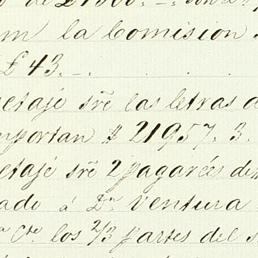 de £1000. -. son £
m la Comision
£43. -.
etaje sre las letras d
mportan $ 21957. 3.
etaje sre 2 pagarées de
ado á Dn Ventura
Cta los 2/3 partes del s